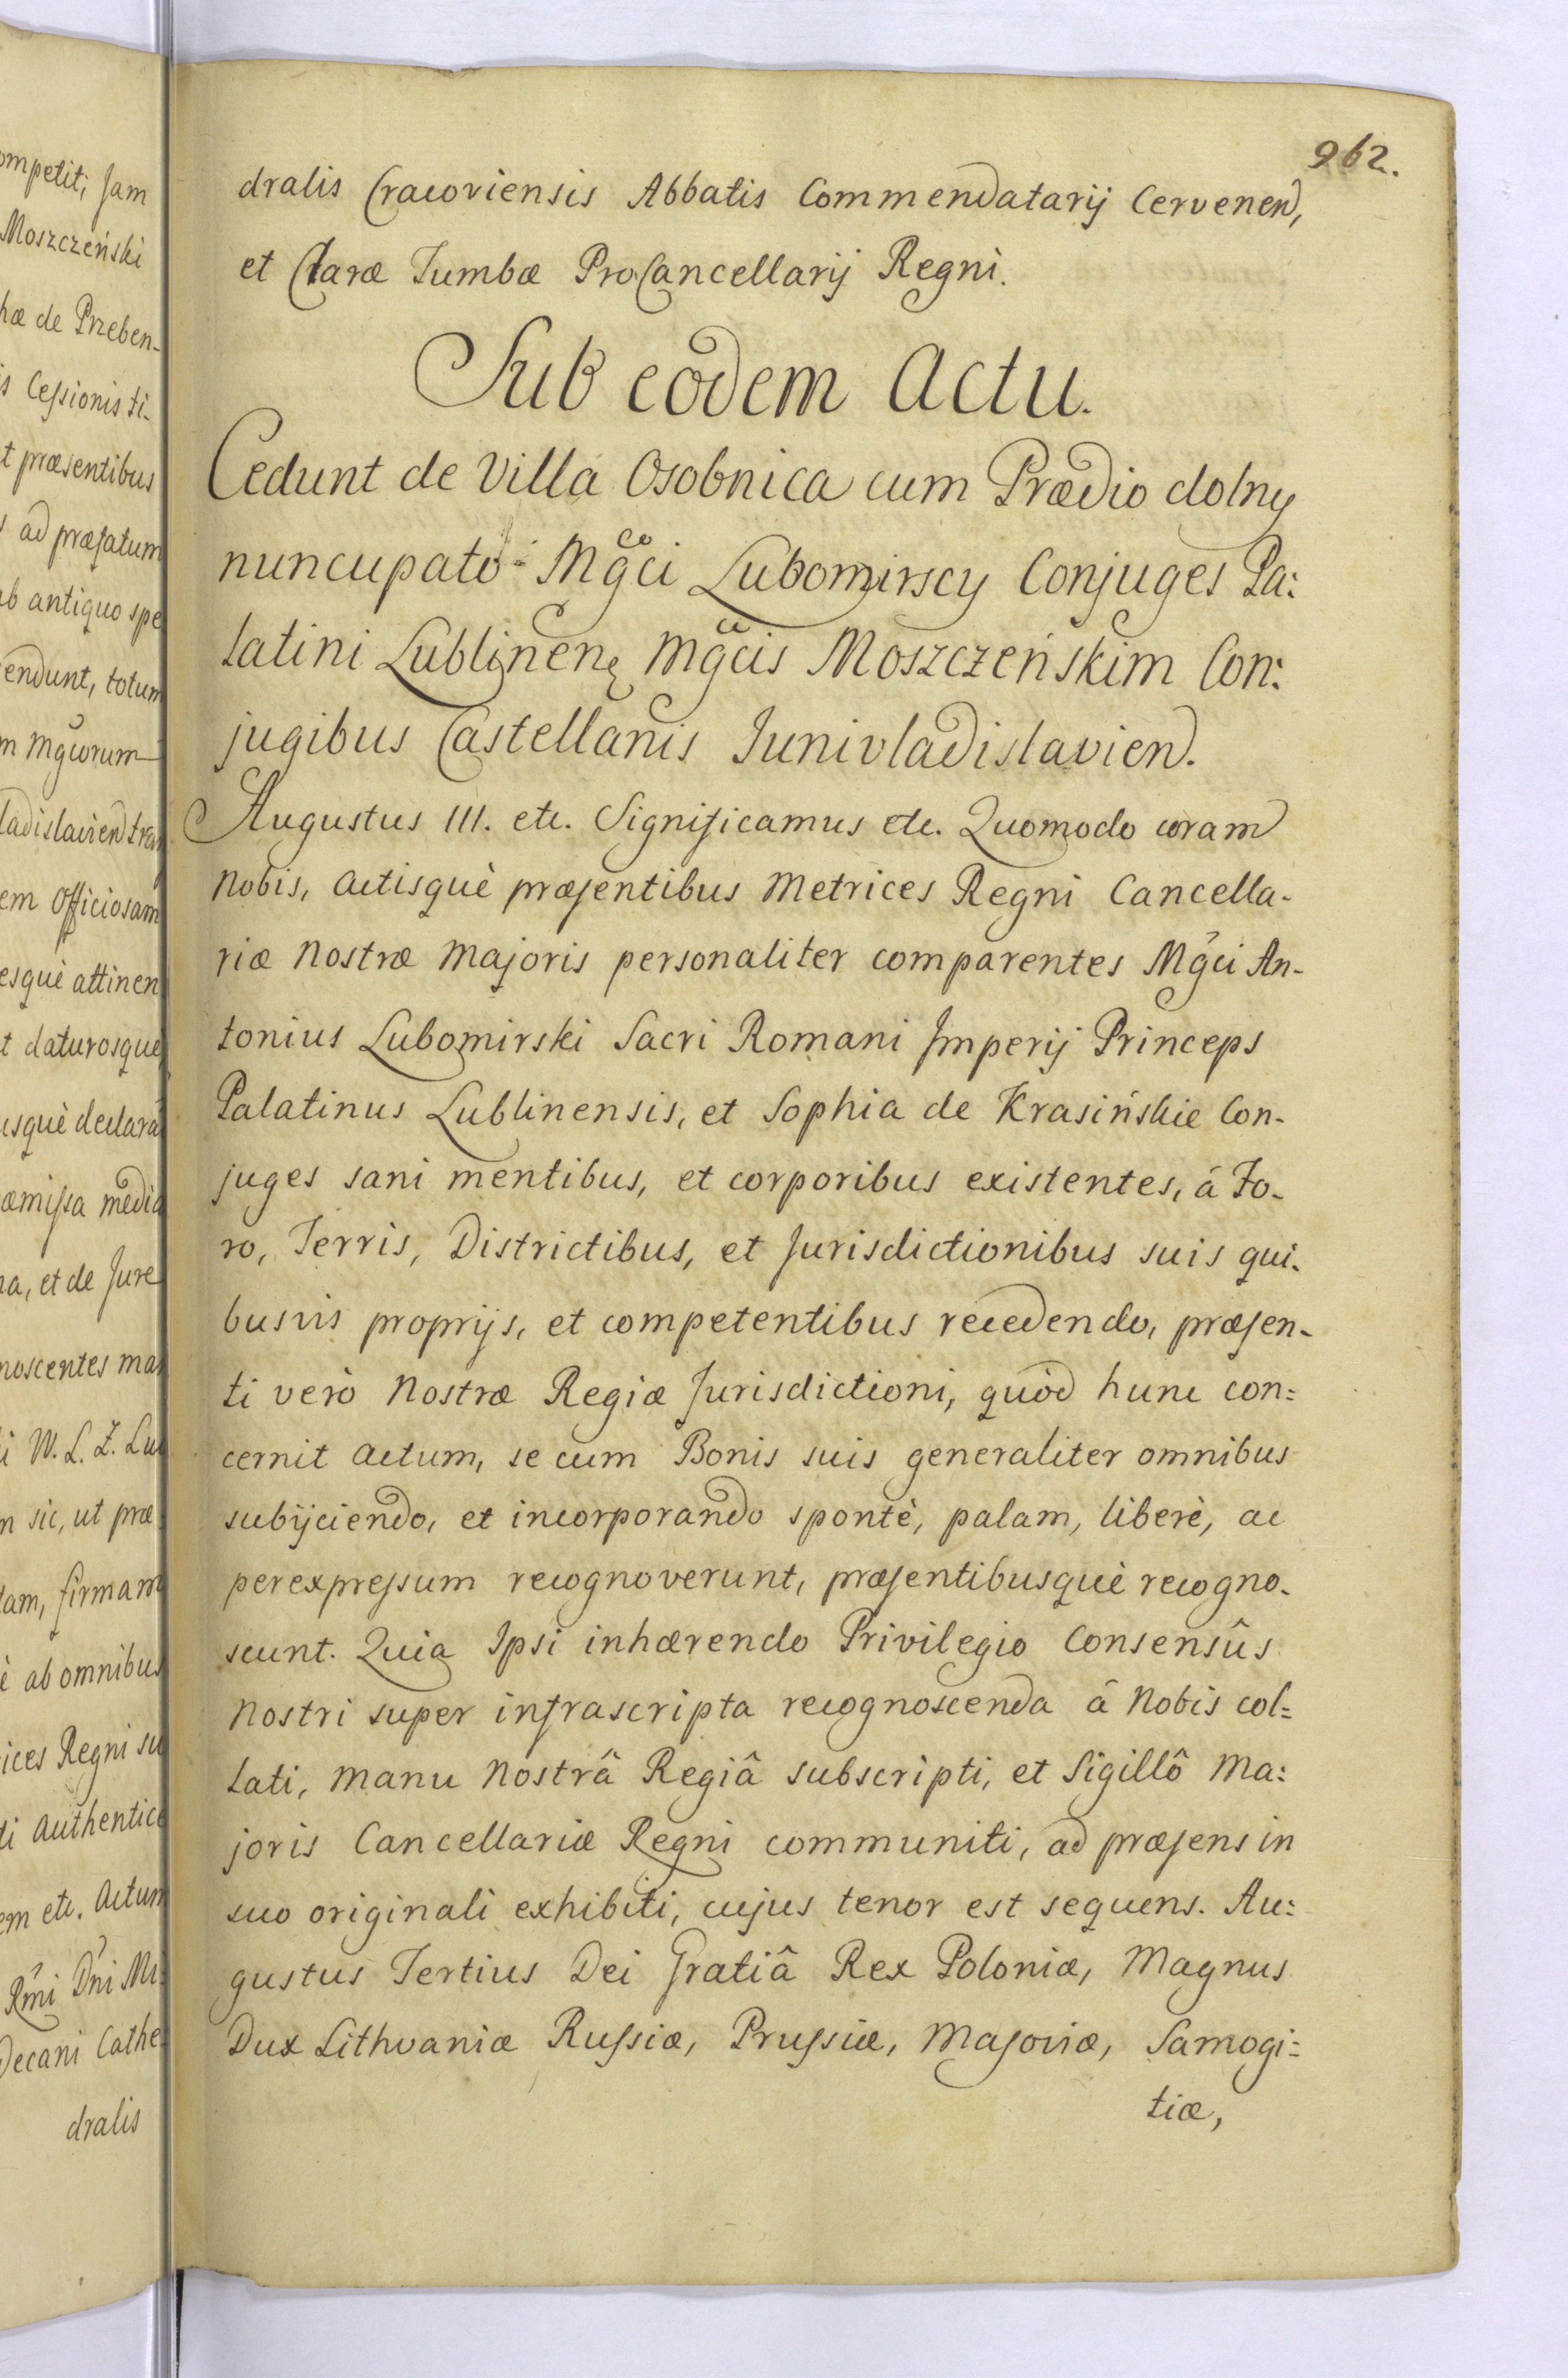 ompetit; Jam
Moszczeński
hæ de Przeben-
is Cessionis ti-
t præsentibus
ad præfatum
ab antiquo spe
endunt, totum
m Mgcorum
ladislavien tra
em Officiosam
esquè attinen
t daturosque
usquè declara
æmissa media
na, et de Jure
noscentes ma
i W. L. Z. Lu
n sic, ut præ
lam, firmam
è ab omnibus
ices Regni su
ti authentice
em etc. Actum
Rmi Dni Mi:
Decani Cathe
dralis
962.
dralis Cracoviensis Abbatis Commendatarij Cervenen,
et Claræ Tumbæ ProCancellarij Regni.
Sub eodem Actu.
Cedunt de Villa Osobnica cum Prædio dolny
nuncupato Mgci Lubomirscy Conjuges Pa:
latini Lublinen Mgcis Moszczeńskim Con:
jugibus Castellanis Junivladislavien.
Augustus III. etc. Significamus etc. Quomodo coram
Nobis, Actisquè præsentibus Metrices Regni Cancella-
riæ Nostræ Majoris personaliter comparentes Mgci An-
tonius Lubomirski Sacri Romani Imperij Princeps
Palatinus Lublinensis, et Sophia de Krasińskie Con-
juges sani mentibus, et corporibus existentes, á Fo-
ro, Terris, Districtibus, et Jurisdictionibus suis qui-
busvis proprijs, et competentibus recedendo, præsen-
ti verò Nostræ Regiæ Jurisdictioni, quòd hunc con=
cernit Actum, se cum Bonis suis generaliter omnibus
subijciendo, et incorporando spontè, palam, liberè, ac
perexpressum recognoverunt, præsentibusquè recogno-
scunt. Quia Ipsi inhærendo Privilegio Consensûs
Nostri super infrascripta recognoscenda â Nobis col=
lati, Manu Nostrâ Regiâ subscripti, et Sigillô Ma:
joris Cancellariæ Regni communiti, ad præsens in
suo originali exhibiti, cujus tenor est sequens. Au:
gustus Tertius Dei Gratiâ Rex Poloniæ, Magnus
Dux Lithvaniæ Russiæ, Prussiæ, Masoviæ, Samogi=
tiæ,